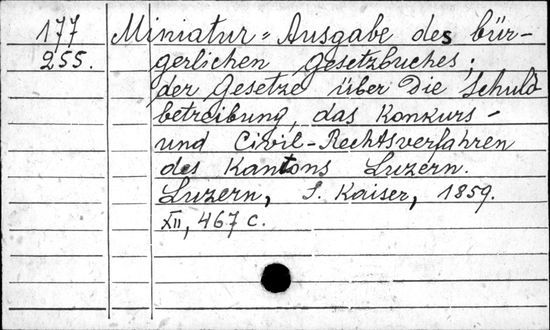 177 Miniatur-Ausgabe des bür-
255. gerlichen Gesetzbuches;
der Gesetze über die Schuld
betreibung, das Konkurs-
und Civil-Rechtsverfahren
des Kantons Luzern.
Luzern, S. Kaiser, 1859.
XII, 467 c.